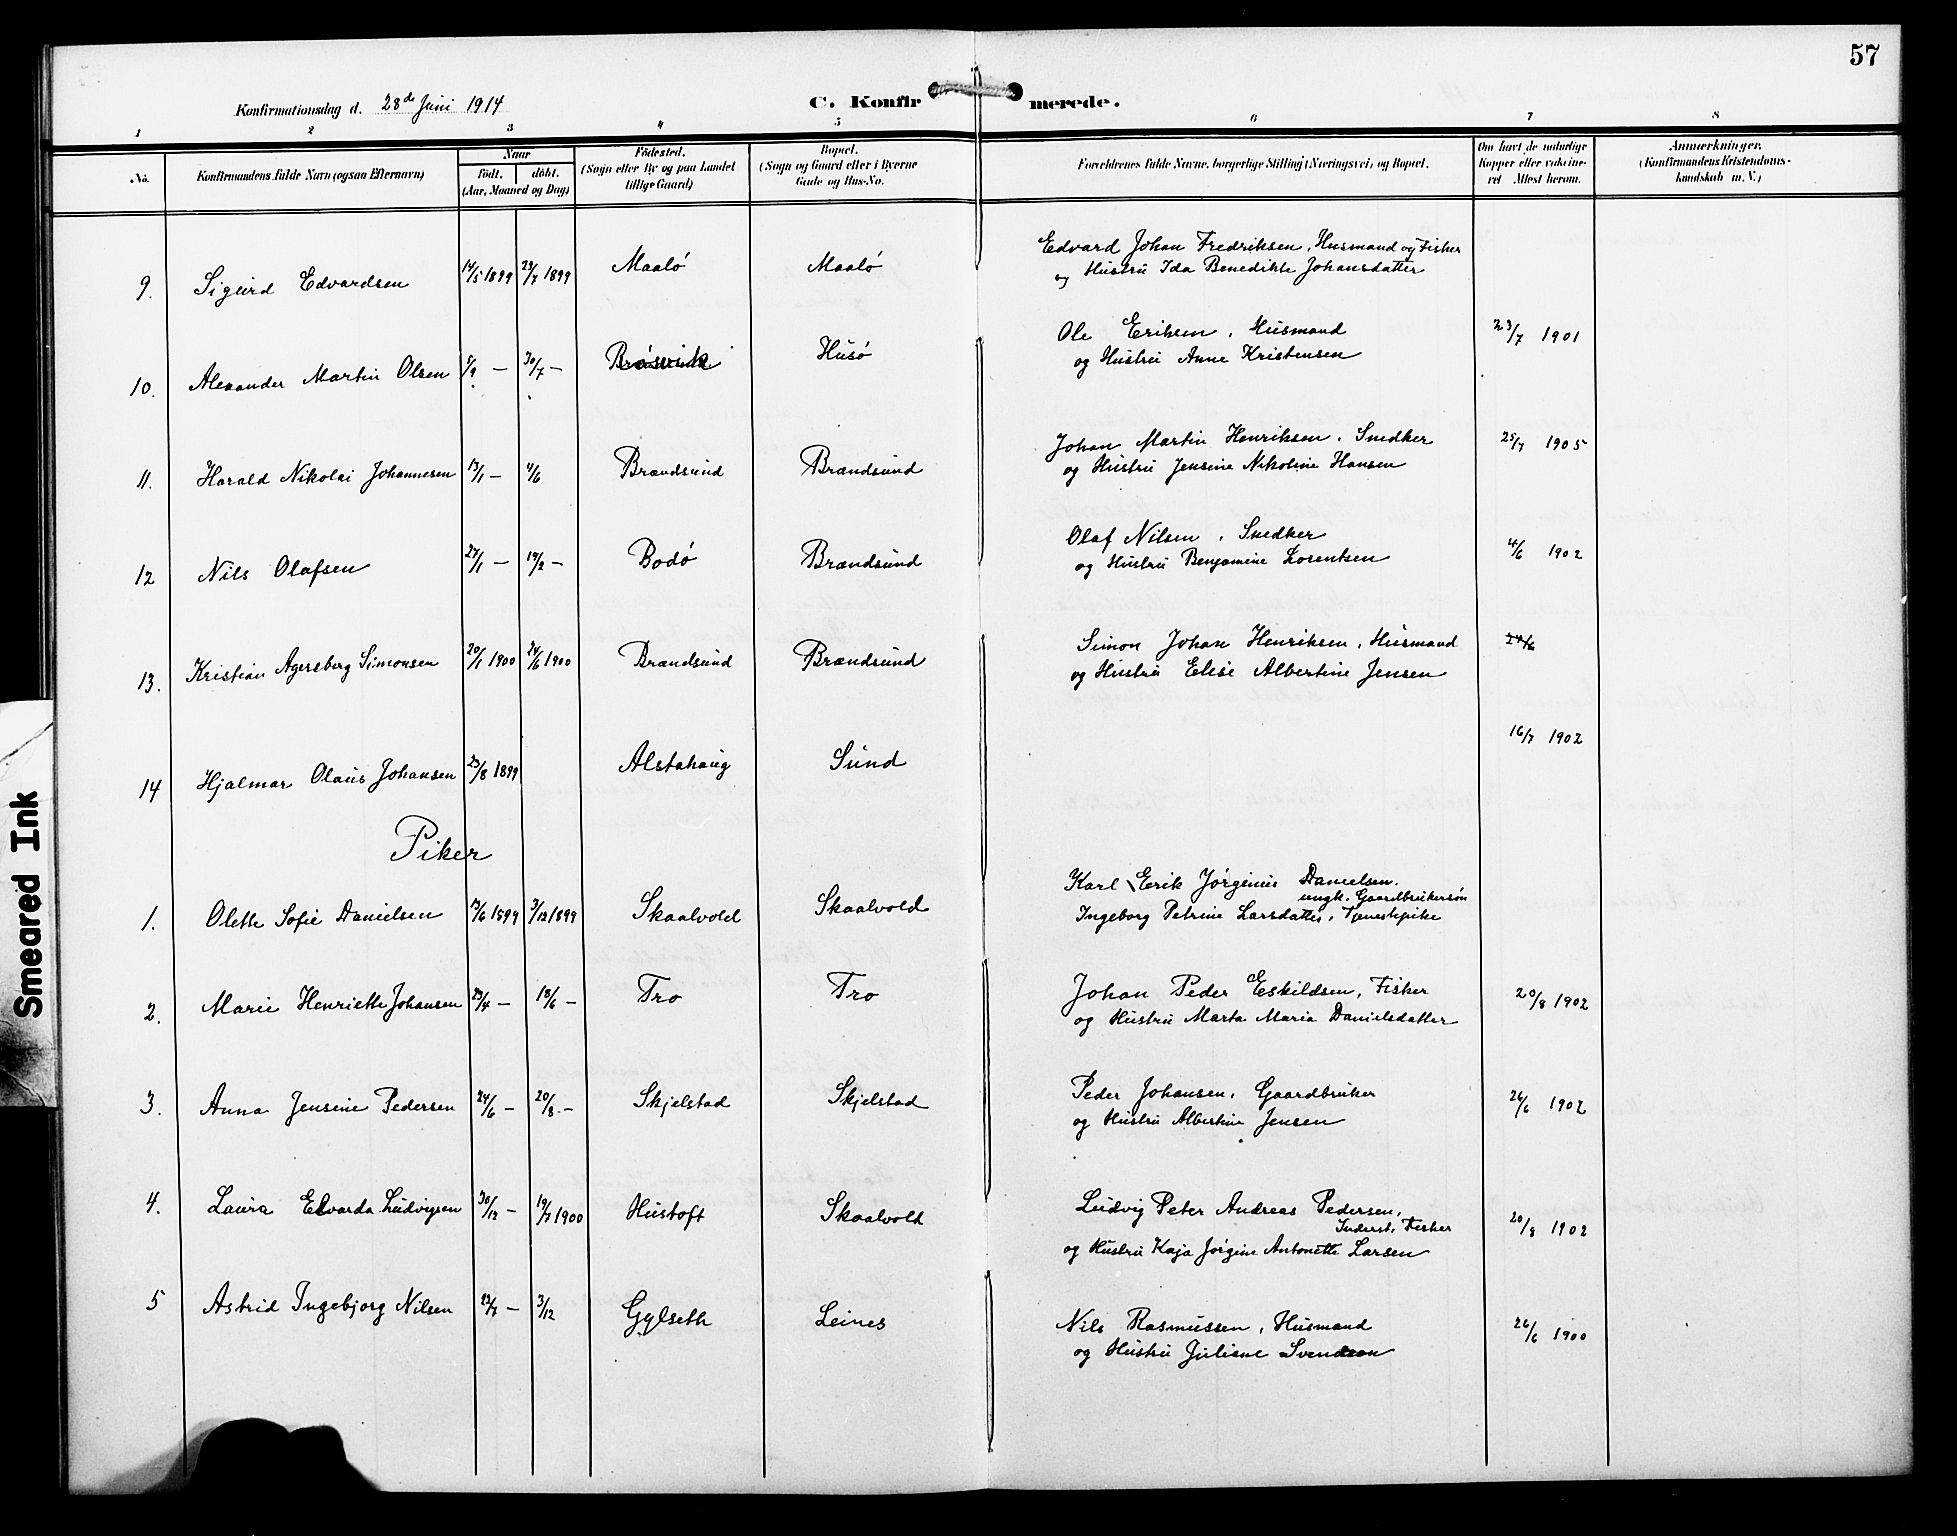 57
Konfirmationsdag d. 28de Juni 1914
C. Konfirmerede.
1 2 3 4 5 6 7 8
No.
Konfirmandens fulde Navn (ogsaa Efternavn)
Naar
født. døbt.
(Aar, Maaned og Dag)
Fødested.
(Sogn eller By og paa Landet
tillige Gaard)
Bopæl.
(Sogn og Gaard eller i Byerne
Gade og Hus-No.
Forældrenes fulde Navne, borgerlige Stilling (Næringsvei) og Bopæl.
Om havt de naturlige
Kopper eller vaccine-
ret Attest herom.
Anmærkninger.
(Konfirmandens Kristendoms-
kundskab m. V.)
9. Sigurd Edvardsen 14/5 1899 23/7 1899 Maalø Maalø
Edvard Johan Fredriksen, Husmand og Fisker
og Hustru Ida Benedikte Johansdatter
10. Alexander Martin Olsen — 30/7 — Husø
Ole Eriksen, Husmand 23/7 1901
og Hustru Anne Kristensen
11. Harald Nikolai Johannesen 13/1 — 4/6 Brændsund Brændsund
Johan Martin Henriksen, Snedker 25/7 1905
og Hustru Jensine Nikoline Hansen
12 Nils Olafsen 27/1 — 19/2 — Bodø Brændsund
Olaf Nilsen, Snedker 4/6 1902
og Hustru Benjamine Lorentsen
13. Kristian Agersberg Simonsen 20/1 1900 24/6 1900 Brændsund Brændsund
Simon Johan Henriksen, Husmand
og Hustru Elise Albertine Jensen
14 Hjalmar Olaus Johansen 23/8 1899 Alstahaug Sund 16/7 1902
Piker
1. Olette Sofie Danielsen 13/6 1899 3/12 1899 Skaalvold Skaalvold
Karl Erik Jørginus Danielsen.
ungk. Gaardbrukersøn
Ingeborg Petrine Larsdatter, Tjenestepike
2. Marie Henriette Johansen 23/4 — 18/6 — Tro Tro
Johan Peder Eskildsen, Fisker 20/8 1902
og Hustru Marta Maria Danielsdatter
3. Anna Jensine Pedersen 24/6 — 20/8 — Skjelstad Skjelstad
Peder Johansen, Gaardbruker 26/6 1902
og Hustru Albertine Jensen
4. Laura Edvarda Ludvigsen 30/12 — 19/7 1900 Hustoft Skaalvold
Ludvig Peter Andreas Pedersen,
Inderst, Fisker 20/8 1902
og Hustru Kaja Jørgine Antonette Larsen
5 Astrid Ingebjorg Nilsen 23/7 — 3/12 Gylseth Leines
Nils Rasmussen, Husmand 26/6 1900
og Hustru Juliane Svendsen
Smeared Ink